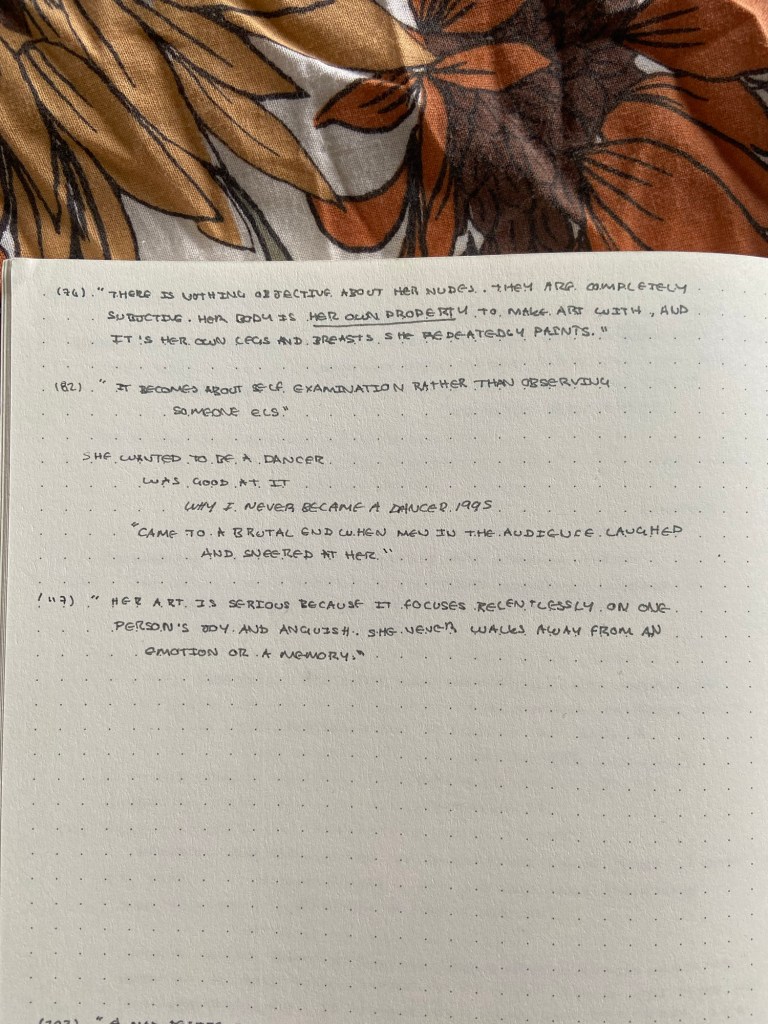 (76). "THERE IS NOTHING OBJECTIVE ABOUT HER NUDES. THEY ARE COMPLETELY
SUBJCTIVE. HER BODY IS HER OWN PROPERTY TO MAKE ART WITH, AND
IT'S HER OWN LEGS AND BREASTS SHE REPEATEDLY PAINTS."
(82) "IT BECOMES ABOUT SELF EXAMINATION RATHER THAN OBSERVING
SOMEONE ELS."
SHE WANTED TO BE A DANCER
WAS GOOD AT IT
WHY I NEVER BECAME A DANCER 1995
"CAME TO A BRUTAL END WHEN MEN IN THE AUDIENCE LAUGHED
AND SNEERED AT HER."
(117) "HER ART IS SERIOUS BECAUSE IT FOCUSES RELENTLESSLY ON ONE
PERSON'S JOY AND ANGUISH. SHE NEVER WALKS AWAY FROM AN
EMOTION OR A MEMORY."